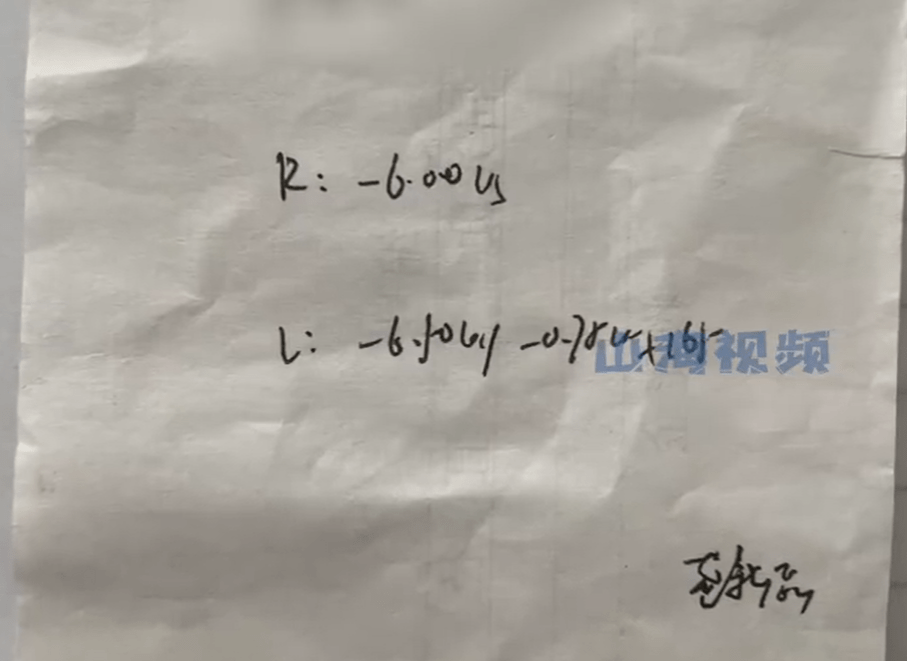 R: -6.00 DS
L: -6.50DS/-0.75DC×165
山河视频